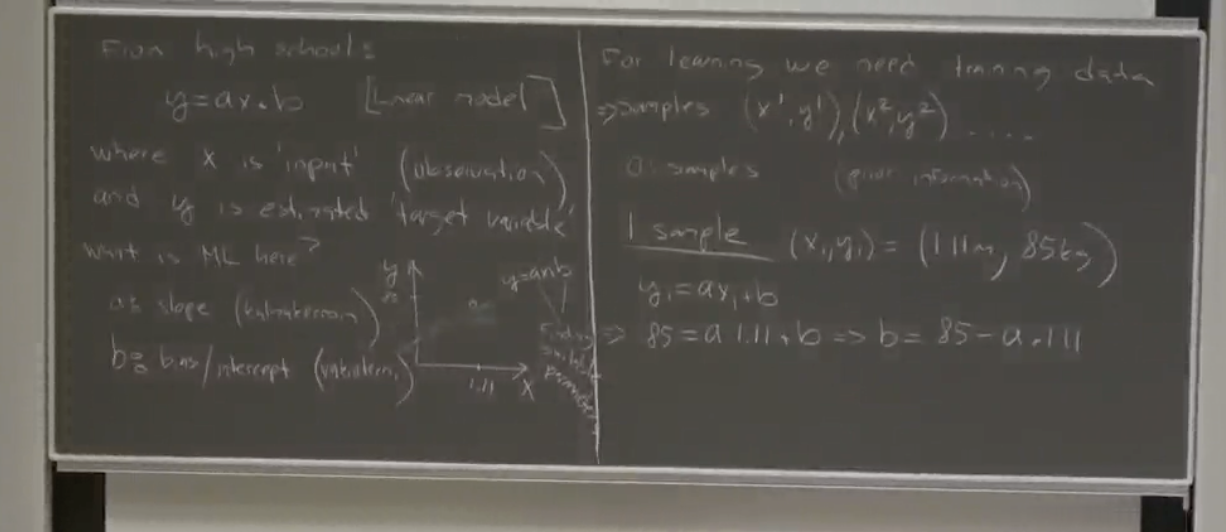 From high schools
y=ax+b [Linear model]
where x is 'input' (observation)
and y is estimated 'target variable'
What is ML here?
a: slope (kulmakerroin)
b: bias/intercept (vakiotermi)
y
85
y=ax+b
1.11
x
Finding
suitable
parameters
For learning we need training data
⇒ samples (x¹,y¹),(x²,y²).....
0: samples (prior information)
1 sample (x₁,y₁) = (1.11m, 85kg)
y₁=ax₁+b
⇒ 85=a·1.11+b ⇒ b= 85-a·1.11